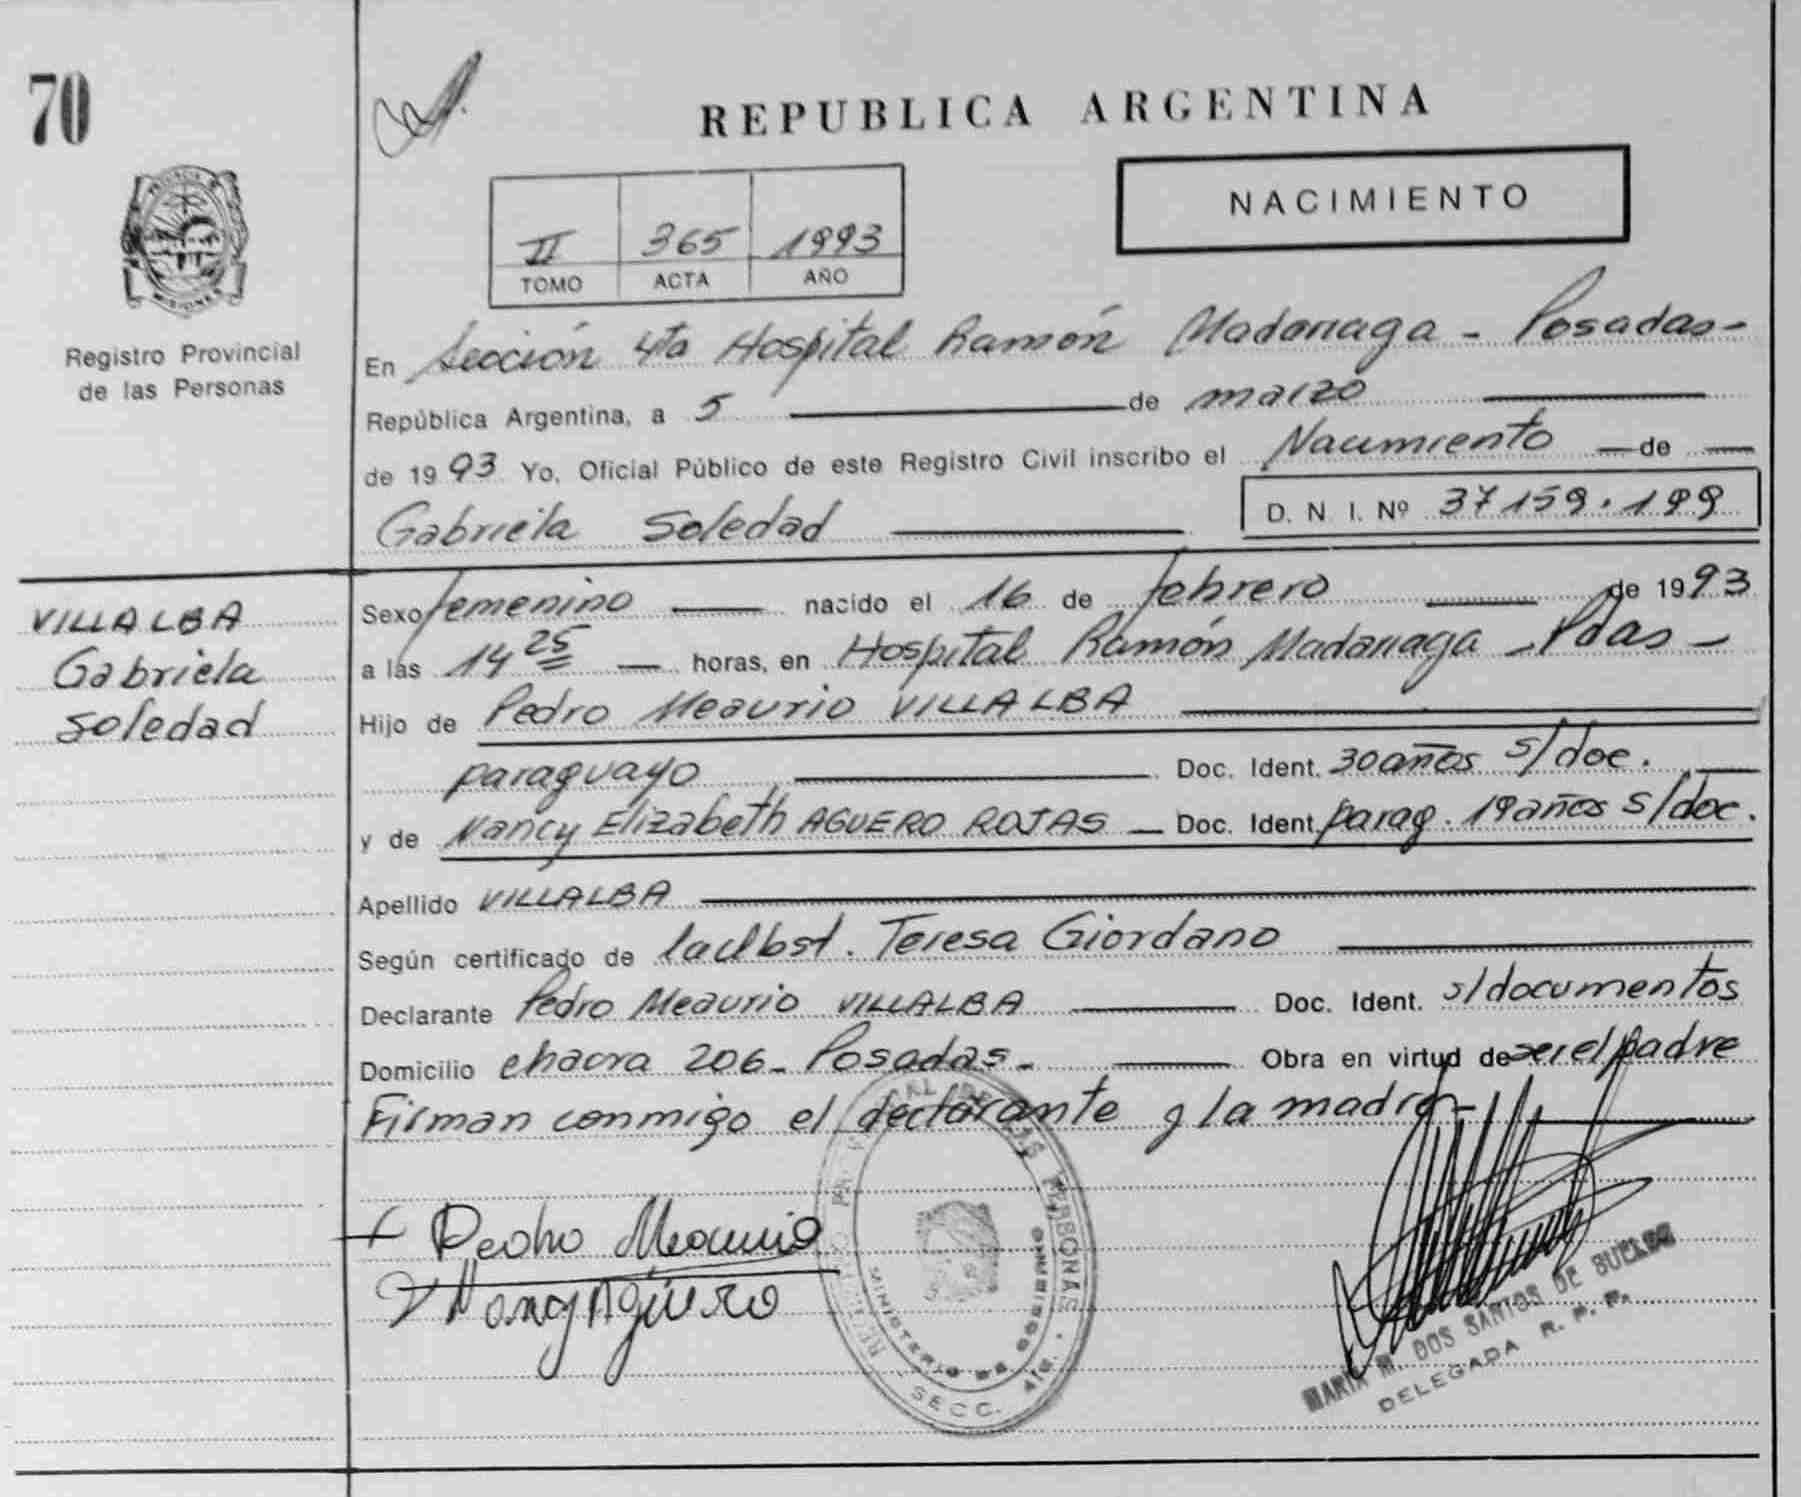 70
REPUBLICA ARGENTINA
NACIMIENTO
II 365 1993
TOMO ACTA AÑO
PROVINCIA DE
MISIONES
Registro Provincial
de las Personas
En Sección 4ta Hospital Ramón Madariaga - Posadas-
República Argentina, a 5 de marzo
de 1993 Yo, Oficial Público de este Registro Civil inscribo el Nacimiento de
Gabriela Soledad D. N. I. Nº 37159.199
VILLALBA
Gabriela
Soledad
Sexo femenino nacido el 16 de febrero de 1993
a las 14 25 horas, en Hospital Ramón Madariaga - Pdas -
Hijo de Pedro Meaurio VILLALBA
paraguayo Doc. Ident. 30 años s/doc.
y de Nancy Elizabeth AGUERO ROJAS - Doc. Ident. parag. 19 años s/doc.
Apellido VILLALBA
Según certificado de la Obst. Teresa Giordano
Declarante Pedro Meaurio VILLALBA Doc. Ident. s/documentos
Domicilio chacra 206- Posadas- Obra en virtud de ser el padre
Firman conmigo el declarante y la madre-
Pedro Meaurio
Nancy Agüero
DE LAS PERSONAS
MINISTERIO DE GOBIERNO
SECC. 4ta.
MARIA M. DOS SANTOS DE BUELBO
DELEGADA R. P. P.